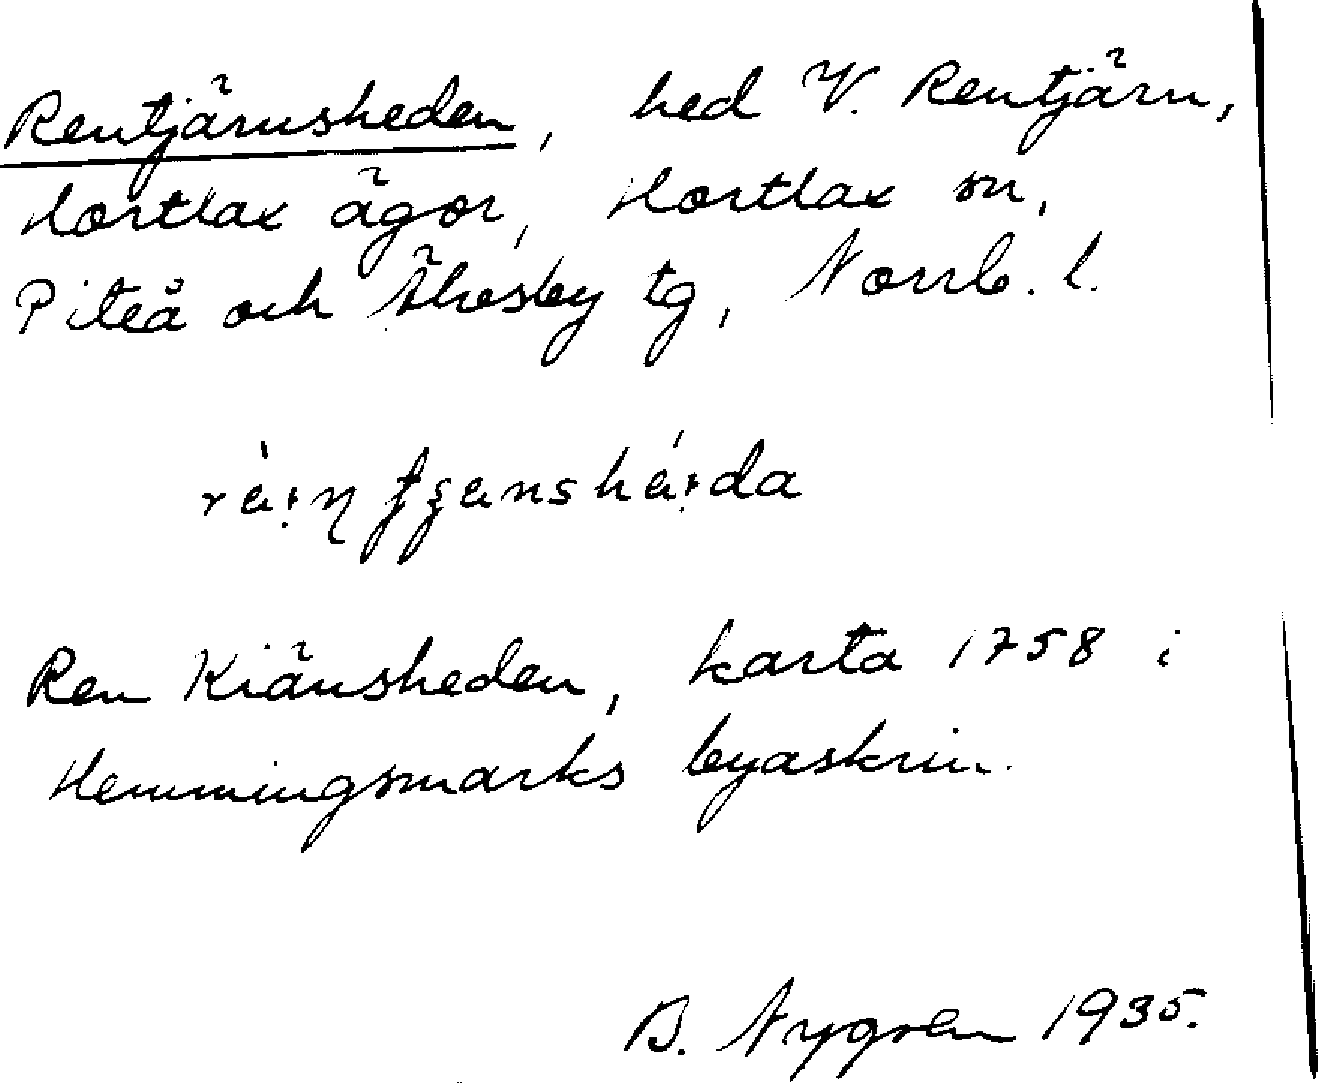 Rentjärnsheden, hed V. Rentjärn,
Hortlax ägor, Hortlax sn,
Piteå och Älvsby tg, Norrb. l.
Ren Kiänsheden, karta 1758 i
Hemmingsmarks byaskrin.
B. Nygren 1935.